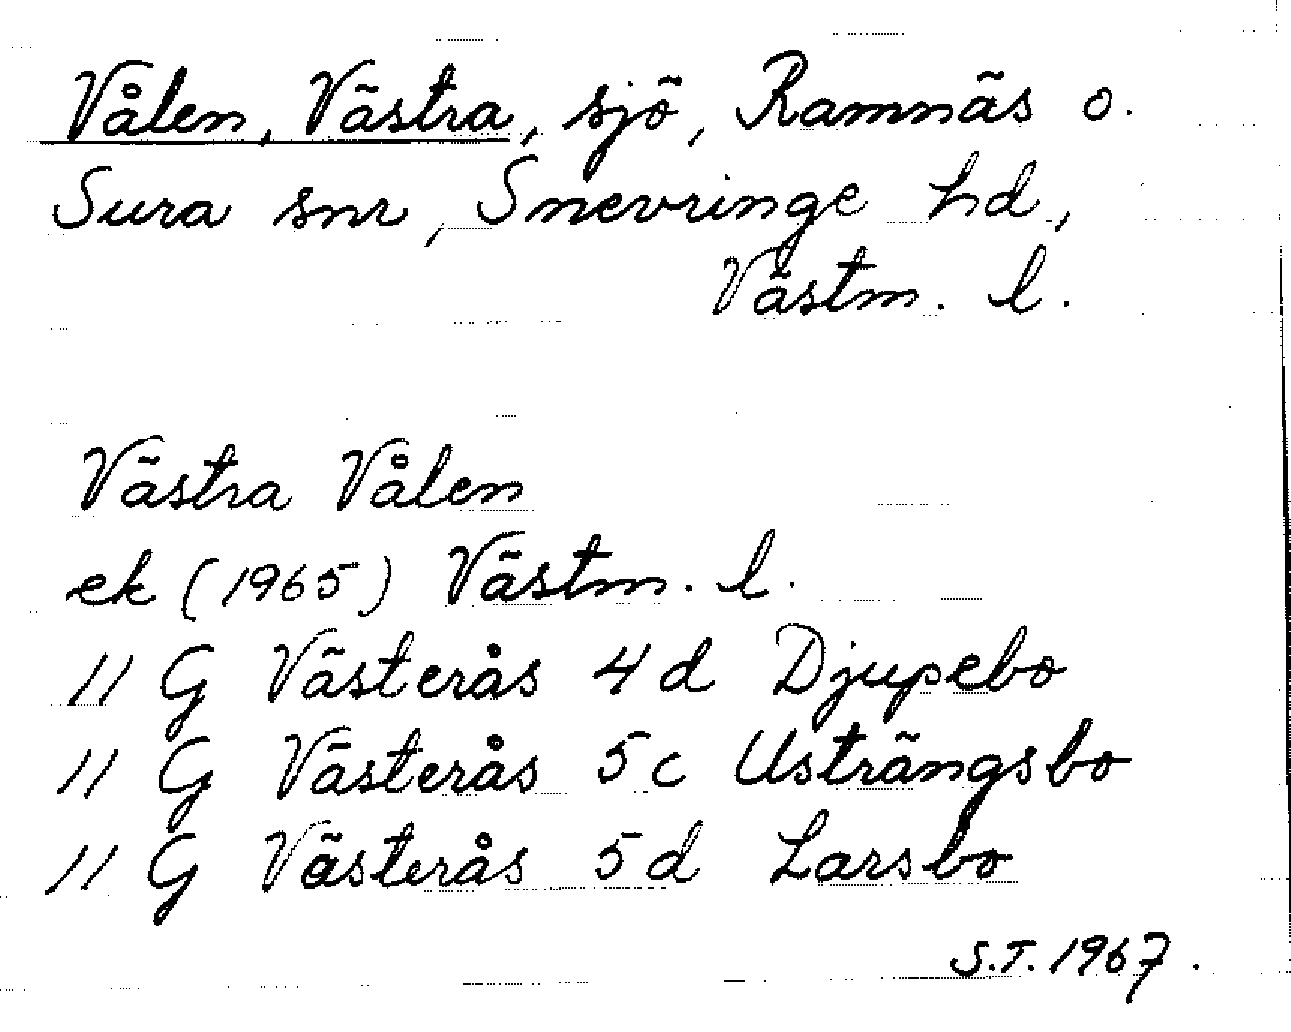 Vålen, Västra, sjö, Ramnäs o.
Sura snr, Snevringe hd,
Västm. l.
Västra Vålen
ek (1965) Västm. l.
11 G Västerås 4d Djupebo
11 G Västerås 5c Usträngsbo
11 G Västerås 5d Larsbo
S.T. 1967.